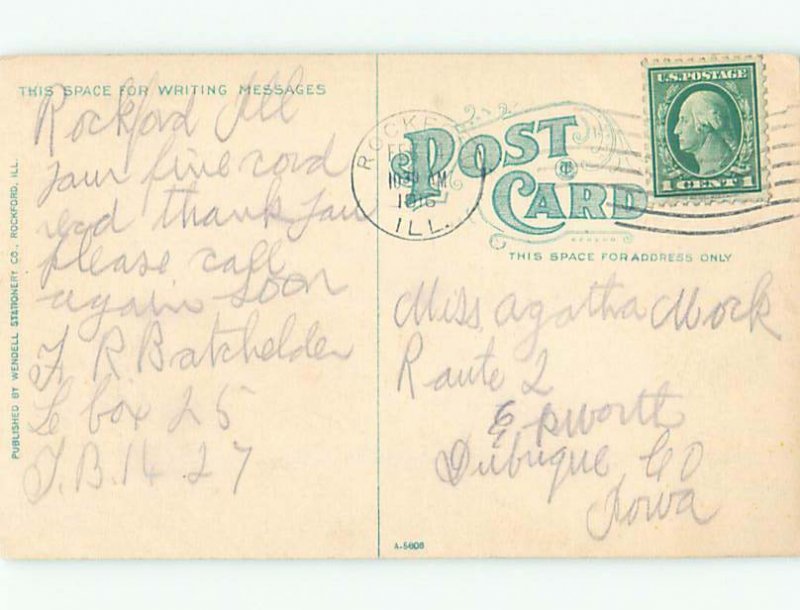 THIS SPACE FOR WRITING MESSAGES
Rockford Ill
your fine card
recd thank you
please call
again soon
F R Batchelder
L box 25
F.B. 14 27
PUBLISHED BY WENDELL STATIONERY CO., ROCKFORD, ILL.
ROCKF
FE
AM
1916
ILL.
POST
CARD
U.S. POSTAGE
1 CENT 1
THIS SPACE FOR ADDRESS ONLY
Miss Agatha Mock
Raute 2
Epworth
Dubuque Co
Iowa
A-5608